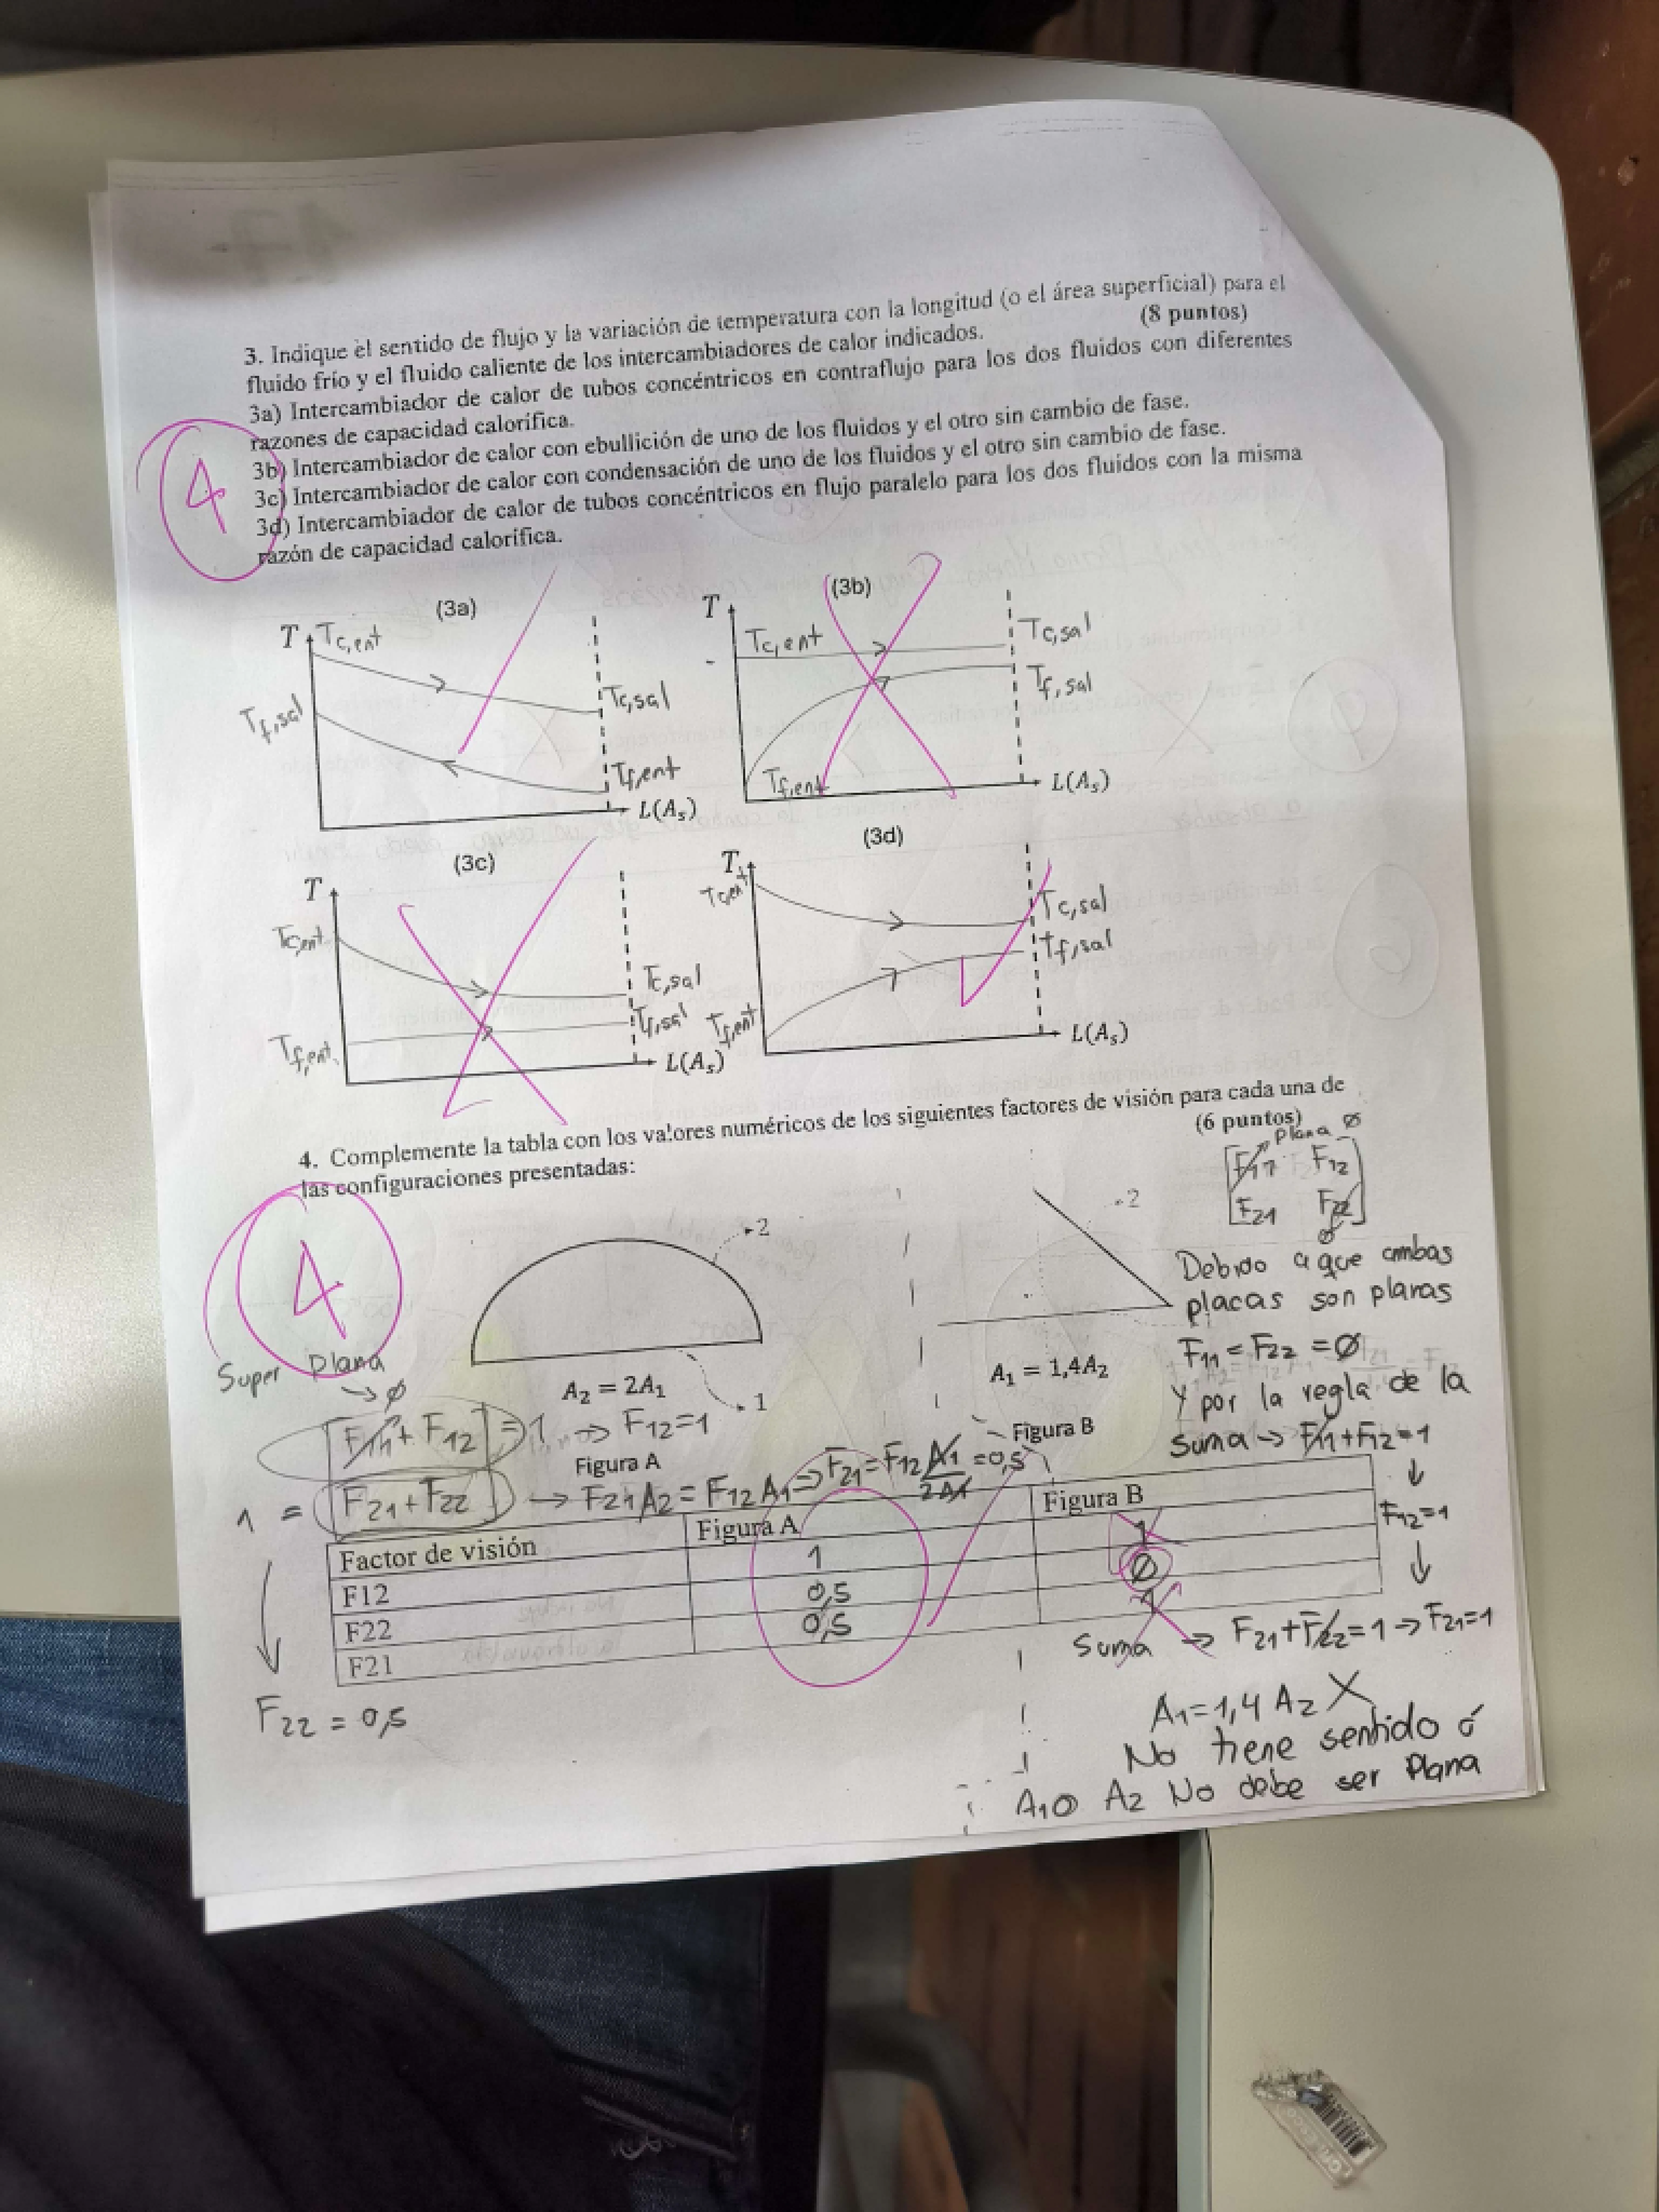 3. Indique el sentido de flujo y la variación de temperatura con la longitud (o el área superficial) para el
fluido frío y el fluido caliente de los intercambiadores de calor indicados. (8 puntos)
3a) Intercambiador de calor de tubos concéntricos en contraflujo para los dos fluidos con diferentes
razones de capacidad calorífica.
3b) Intercambiador de calor con ebullición de uno de los fluidos y el otro sin cambio de fase.
3c) Intercambiador de calor con condensación de uno de los fluidos y el otro sin cambio de fase.
3d) Intercambiador de calor de tubos concéntricos en flujo paralelo para los dos fluidos con la misma
razón de capacidad calorífica.
4
(3a)
T
Tc,ent
Tf,sal
Tc,sal
Tf,ent
L(As)
(3b)
T
Tc,ent
Tc,sal
Tf,sal
Tf,ent
L(As)
(3c)
T
Tc,ent
Tc,sal
Tf,sal
Tf,ent
L(As)
(3d)
T
Tc,ent
Tc,sal
Tf,sal
Tf,ent
L(As)
4. Complemente la tabla con los valores numéricos de los siguientes factores de visión para cada una de
las configuraciones presentadas: (6 puntos)
4
Plana Ø
F11 F12
F21 F22
Ø
2
A2 = 2A1
1
Figura A
2
A1 = 1,4A2
Figura B
Super Plana
→ Ø
F11 + F12 = 1 → F12=1
1 = F21 + F22 → F21A2 = F12A1 → F21 = F12 A1/2A1 = 0,5
F22 = 0,5
Debido a que ambas
placas son planas
F11 = F22 = Ø
Y por la regla de la
Suma → F11+F12=1
↓
F12=1
↓
Suma → F21+F22=1 → F21=1
Factor de visión Figura A Figura B
F12 1 1
F22 0,5 Ø
F21 0,5 1
A1=1,4 A2 X
No tiene sentido ó
A1 o A2 No debe ser Plana